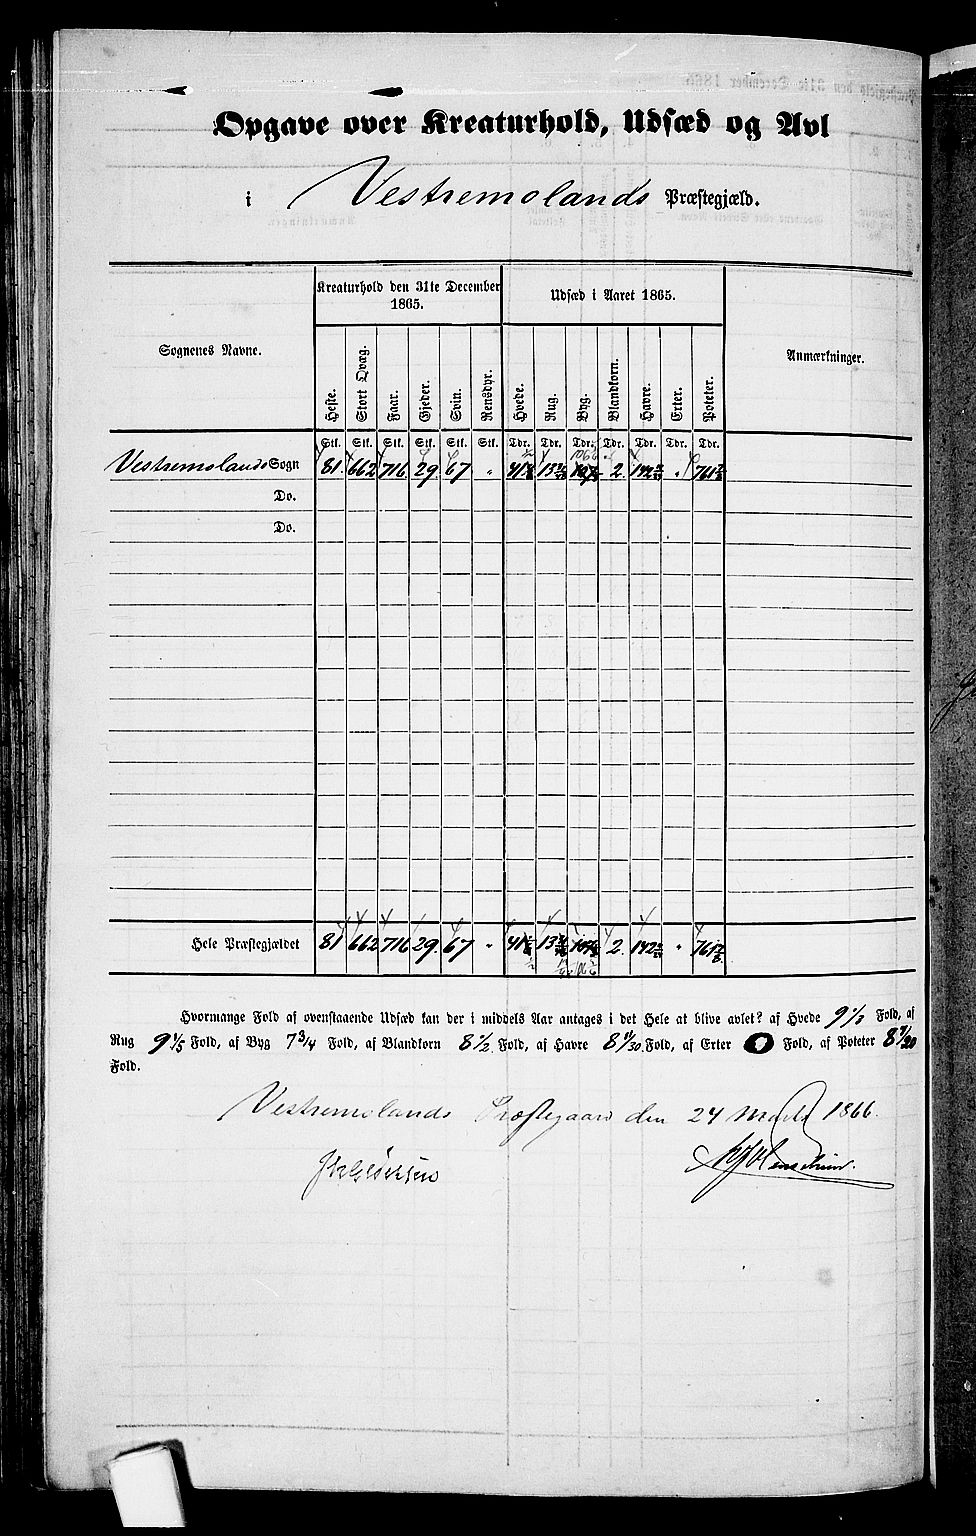 Opgave over Kreaturhold, Udsæd og Avl
i Vestremolands Præstegjæld.
Sognenes Navne.
Kreaturhold den 31te December 1865.
Udsæd i Aaret 1865.
Anmærkninger.
Heste. Stort Qvæg. Faar. Gjeder. Svin. Rensdyr. Hvede. Rug. Byg. Blandkorn. Havre. Erter. Poteter.
Stk. Stk. Stk. Stk. Stk. Stk. Tdr. Tdr. Tdr. Tdr. Tdr. Tdr. Tdr.
Vestremolands Sogn 81 662 716 29. 67 " 2. "
Do.
Do.
Hele Præstegjældet 81 662 716 29. 67 " 2. "
Hvormange Fold af ovenstaaende Udsæd kan der i middels Aar antages i det Hele at blive avlet? af Hvede 9 1/3 Fold, af
Rug 9 1/5 Fold, af Byg 7 3/4 Fold, af Blandkorn 8 1/2 Fold, af Havre Fold, af Erter 0 Fold, af Poteter
Fold.
Vestremolands Præstegaard den 24 Marts 1866.